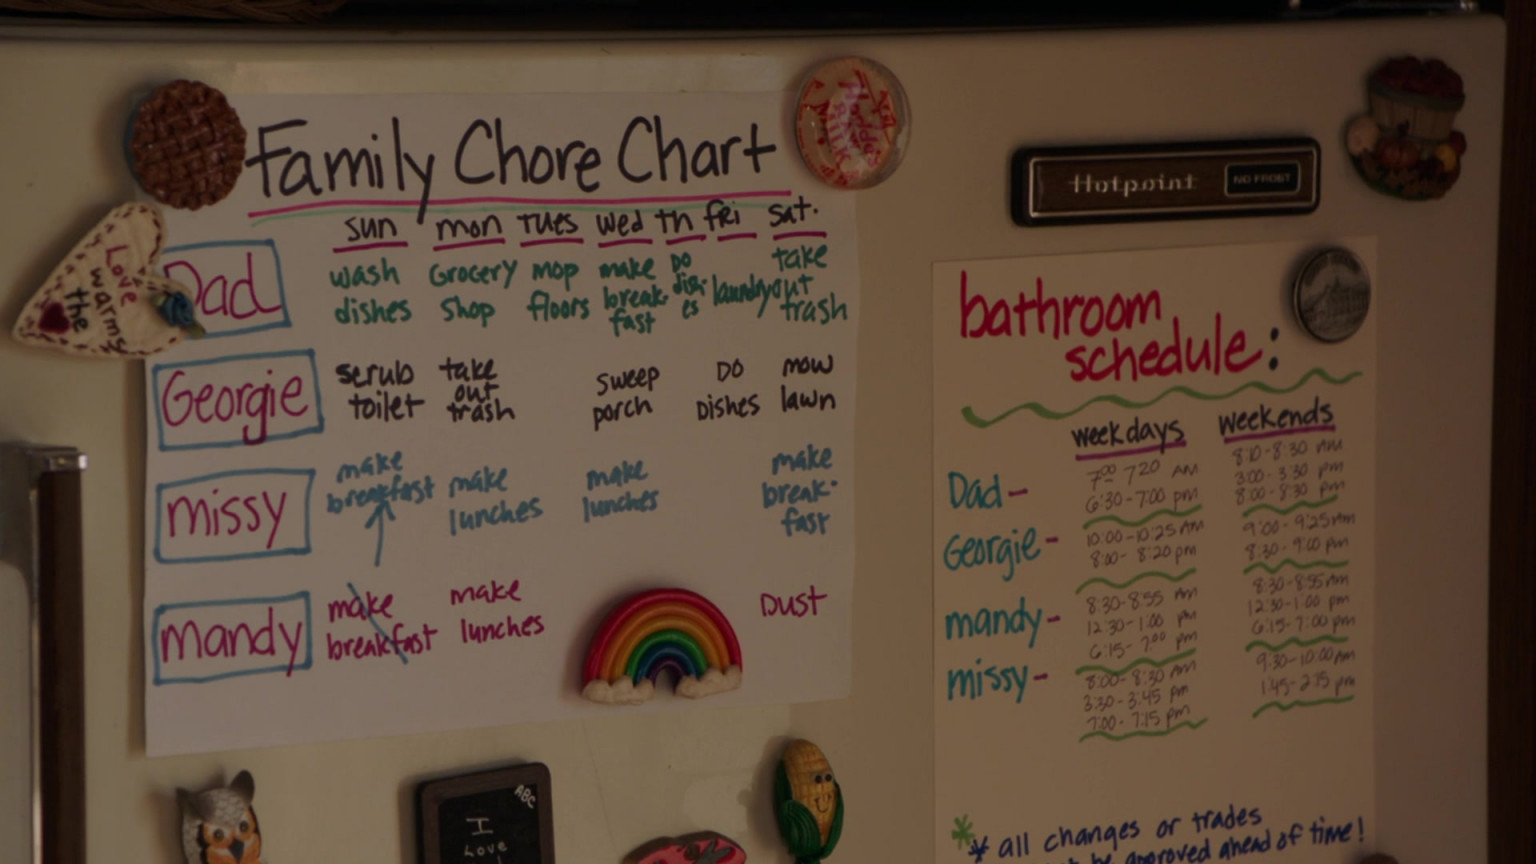 Family Chore Chart
sun mon Tues Wed Th fri sat.
Dad
wash dishes
Grocery Shop
mop floors
make break-fast
Do dish-es
laundry
take out trash
Georgie
scrub toilet
take out trash
sweep porch
Do Dishes
mow lawn
missy
make breakfast
make lunches
make lunches
make break-fast
mandy
make breakfast
make lunches
Dust
Love warms the
Hotpoint
NO FROST
bathroom
schedule:
weekdays weekends
Dad-
7:00 7:20 AM
6:30-7:00 pm
8:10-8:30 AM
3:00-3:30 pm
8:00-8:30 pm
Georgie-
10:00-10:25 AM
8:00-8:20 pm
9:00-9:25 Am
8:30-9:00 pm
mandy-
8:30-8:55 AM
12:30-1:00 pm
6:15-7:00 pm
8:30-8:55 Am
12:30-1:00 pm
6:15-7:00 pm
missy-
8:00-8:30 AM
3:30-3:45 pm
7:00-7:15 pm
9:30-10:00 Am
1:45-2:15 pm
* all changes or trades
be approved ahead of time!
ABC
I
Love